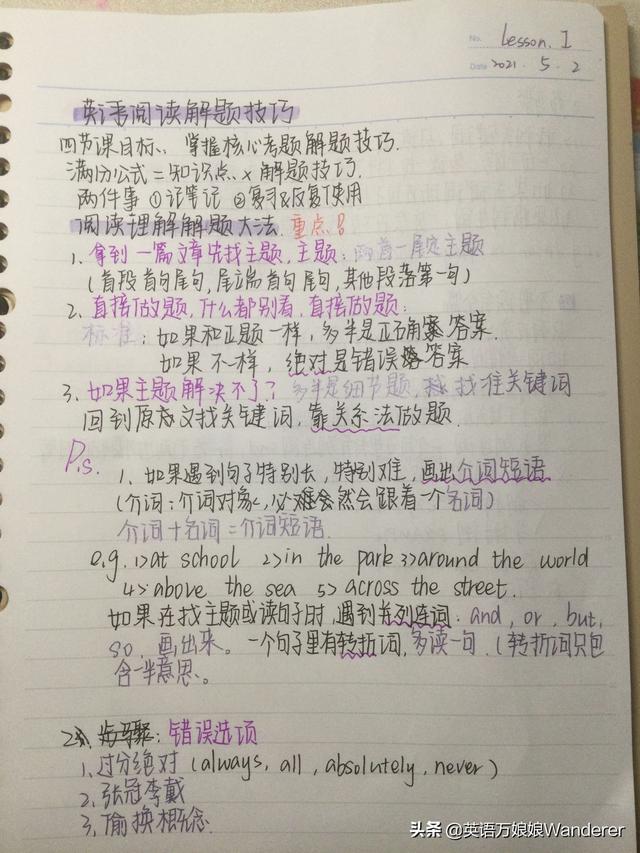 No. Lesson. I
Date 2021. 5. 2
英语阅读解题技巧
四节课目标、掌握核心考题解题技巧.
满分公式=知识点×解题技巧.
两件事 ①记笔记 ②复习&反复使用
阅读理解解题大法. 重点!
1. 拿到一篇文章先找主题, 主题: 两首一尾定主题
(首段首句尾句, 尾端首句尾句, 其他段落第一句)
2. 直接做题, 什么都别看, 直接做题:
标准: 如果和正题一样, 多半是正确答案.
如果不一样, 绝对是错误答案
3. 如果主题解决不了? 多半是细节题, 找准关键词
回到原文找关键词, 靠关系法做题.
P.s.
1. 如果遇到句子特别长, 特别难, 画出介词短语
(介词: 介词对象, 必然会跟着一个名词)
介词+名词=介词短语.
e.g. 1>at school 2>in the park 3>around the world
4> above the sea 5> across the street.
如果在找主题或读句子时, 遇到并列连词: and, or, but,
so, 画出来。一个句子里有转折词, 多读一句. (转折词只包
含一半意思。
2. 步骤: 错误选项
1. 过分绝对 (always, all, absolutely, never)
2. 张冠李戴
3. 偷换概念.
头条 @英语万娘娘Wanderer